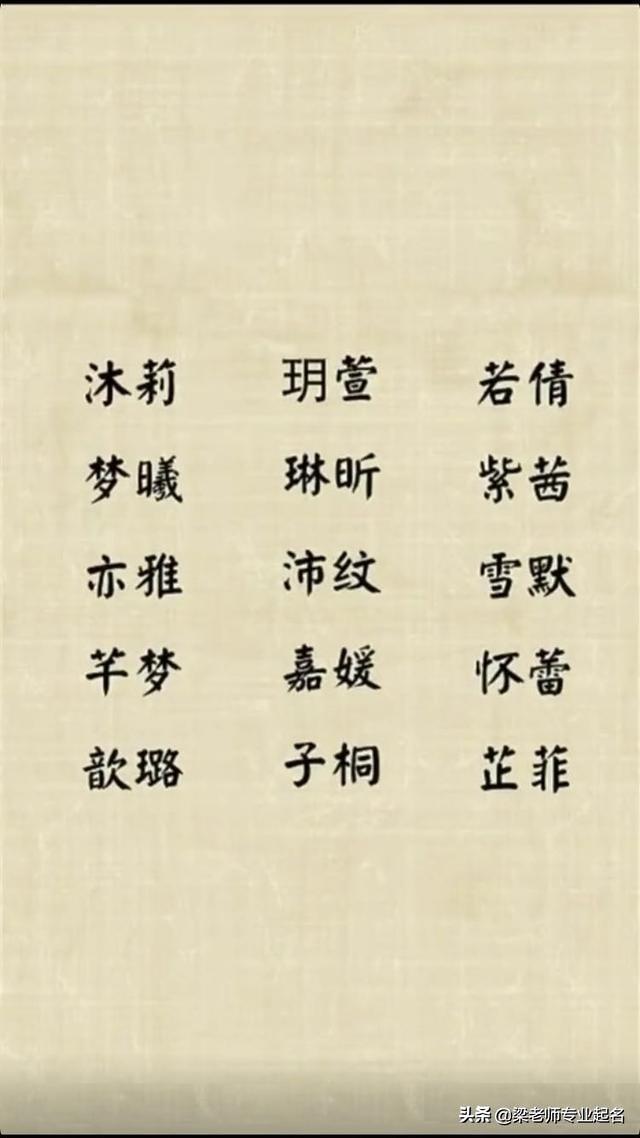 沐莉 玥萱 若倩
梦曦 琳昕 紫茜
亦雅 沛纹 雪默
芊梦 嘉媛 怀蕾
歆璐 子桐 芷菲
头条 @梁老师专业起名